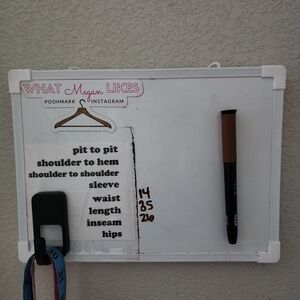 WHAT Megan LIKES
POSHMARK INSTAGRAM
pit to pit
shoulder to hem
shoulder to shoulder
sleeve
waist 14
length 35
inseam 26
hips